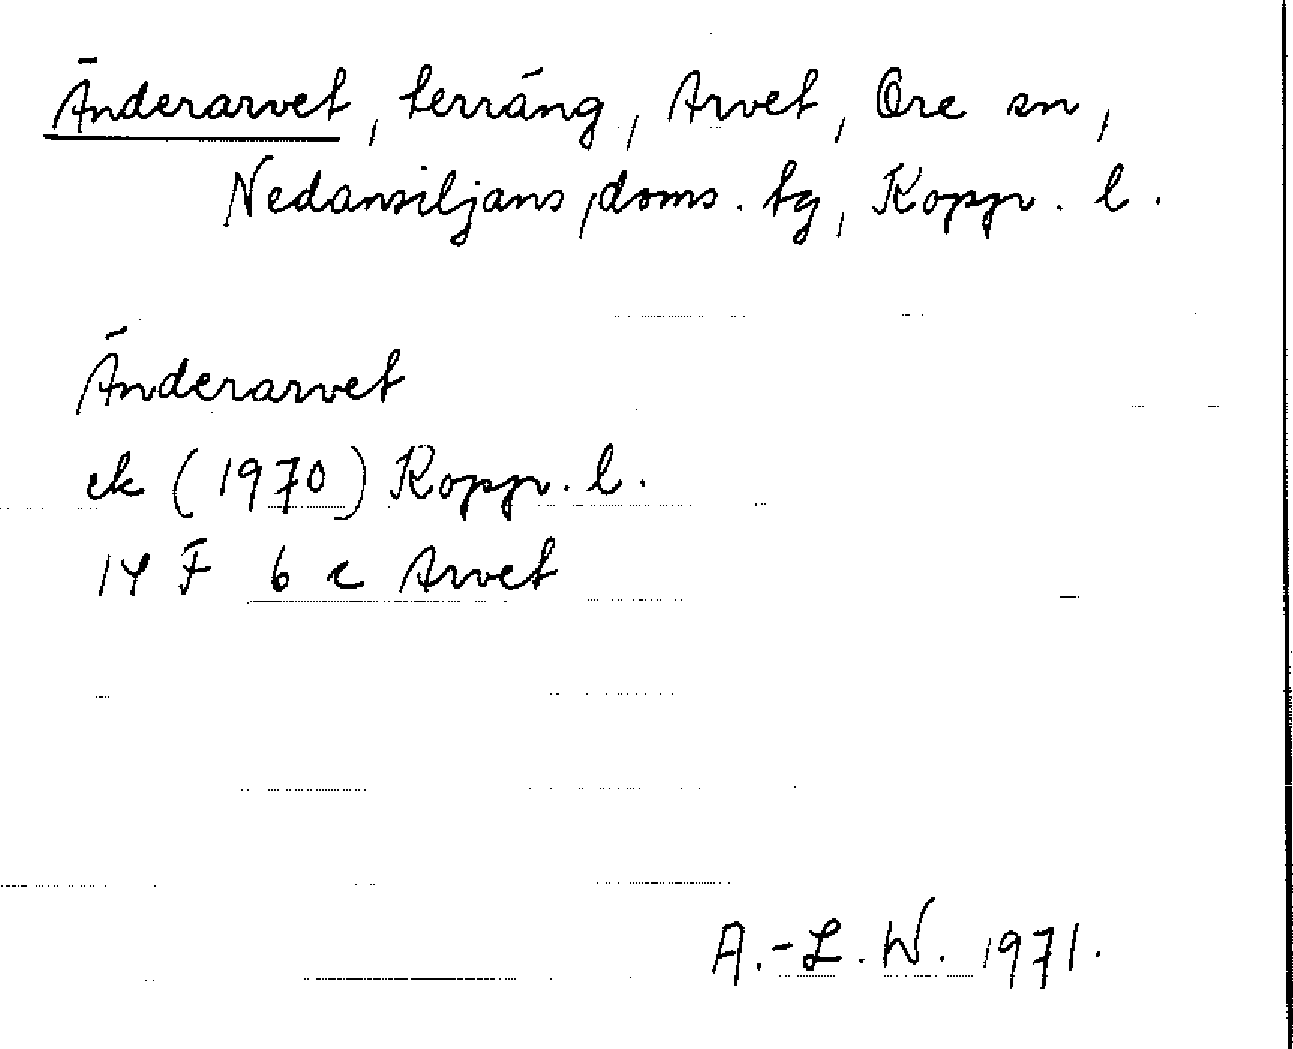 Änderarvet, terräng, Arvet, Ore sn,
Nedansiljans doms. tg, Koppr. l.
Änderarvet
ek (1970) Koppr. l.
14 F 6 c Arvet
A.-L. W. 1971.